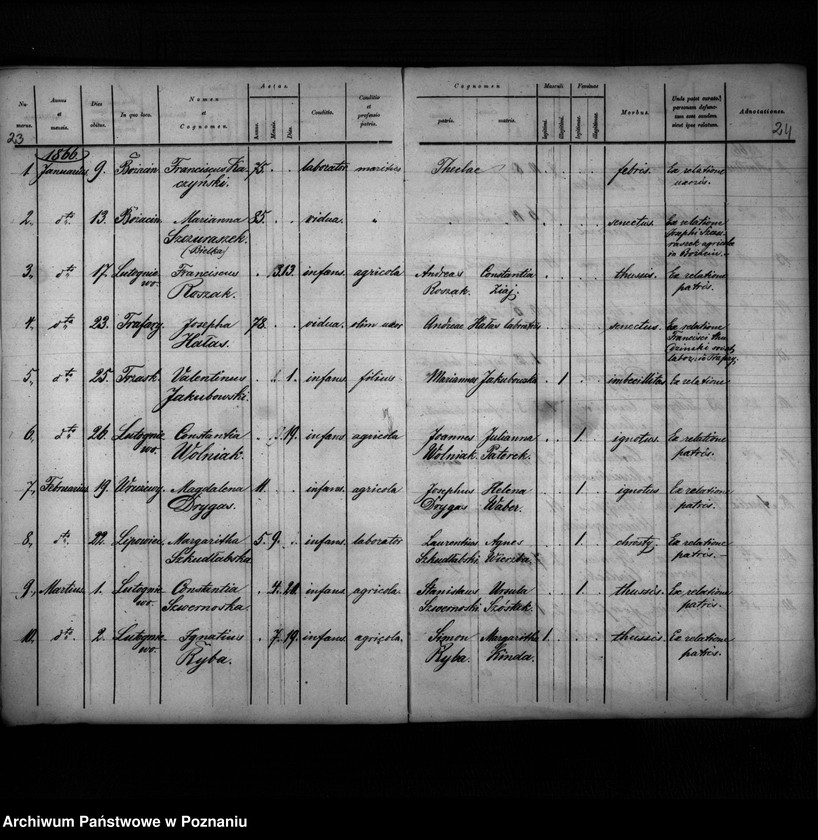 Nu-
merus.
Annus
et
mensis.
Dies
obitus.
In quo loco.
Nomen
et
Cognomen.
Aetas.
Annus.
Mensis.
Dies.
Conditio.
Conditio
et
professio
patris.
Cognomen
patris.
matris.
Masculi
legitimi.
illegitimi.
Feminae
legitimae.
illegitimae.
Morbus.
Unde patet curatu!
personam defunc-
tam esse eandem
sicut ipse relatum.
Adnotationes.
23
24
1866
1 Januarius 9. Franciscus Ka- 75. laborator maritus Theclae febris. Ex relatione
czyński. uxoris.
2. dto 13. Marianna 85. vidua. " senectus. Ex relatione
Szczuraszek.
(Bielka)
3. dto 17. Lutynie- Franciscus 13. infans. agricola Andreas Constantia thussis. Ex relatione
wo. Roszak. Roszak. Ziaj. patris.
4. dto 23. Trafary. Josepha 78. vidua. olim uxor Andreae Hałas senectus. Ex relatione
Hałas. Francisci
5. dto 25. Trzask. Valentinus 1. infans. filius Mariannae Jakubowska 1 imbecillitas Ex relatione
Jakubowski.
6. dto 26. Lutynie- Constantia 19. infans agricola Joannes Julianna 1 ignotus. Ex relatione
wo. Wolniak. Wolniak. Paterek. patris.
7. Februarius 19. Magdalena 11. infans. agricola Josephus Helena 1 ignotus Ex relatione
Drygas. Drygas Waber. patris.
8. dto 22. Lipowiec. Margaritha 5 9. infans. laborator Laurentius Agnes 1 Ex relatione
Szkudlabska. Szkudlabski patris.
9. Martius 1. Lutynie- Constantia 4. infans. agricola Stanislaus Ursula 1 thussis. Ex relatione
wo. Szwernoska. Szwernoski Szóstak. patris.
10. dto 2. Lutynie- Ignatius 7. 19. infans. agricola. Simon Margaritha 1 thussis. Ex relatione
wo. Ryba. Ryba. Kinda. patris.
Archiwum Państwowe w Poznaniu